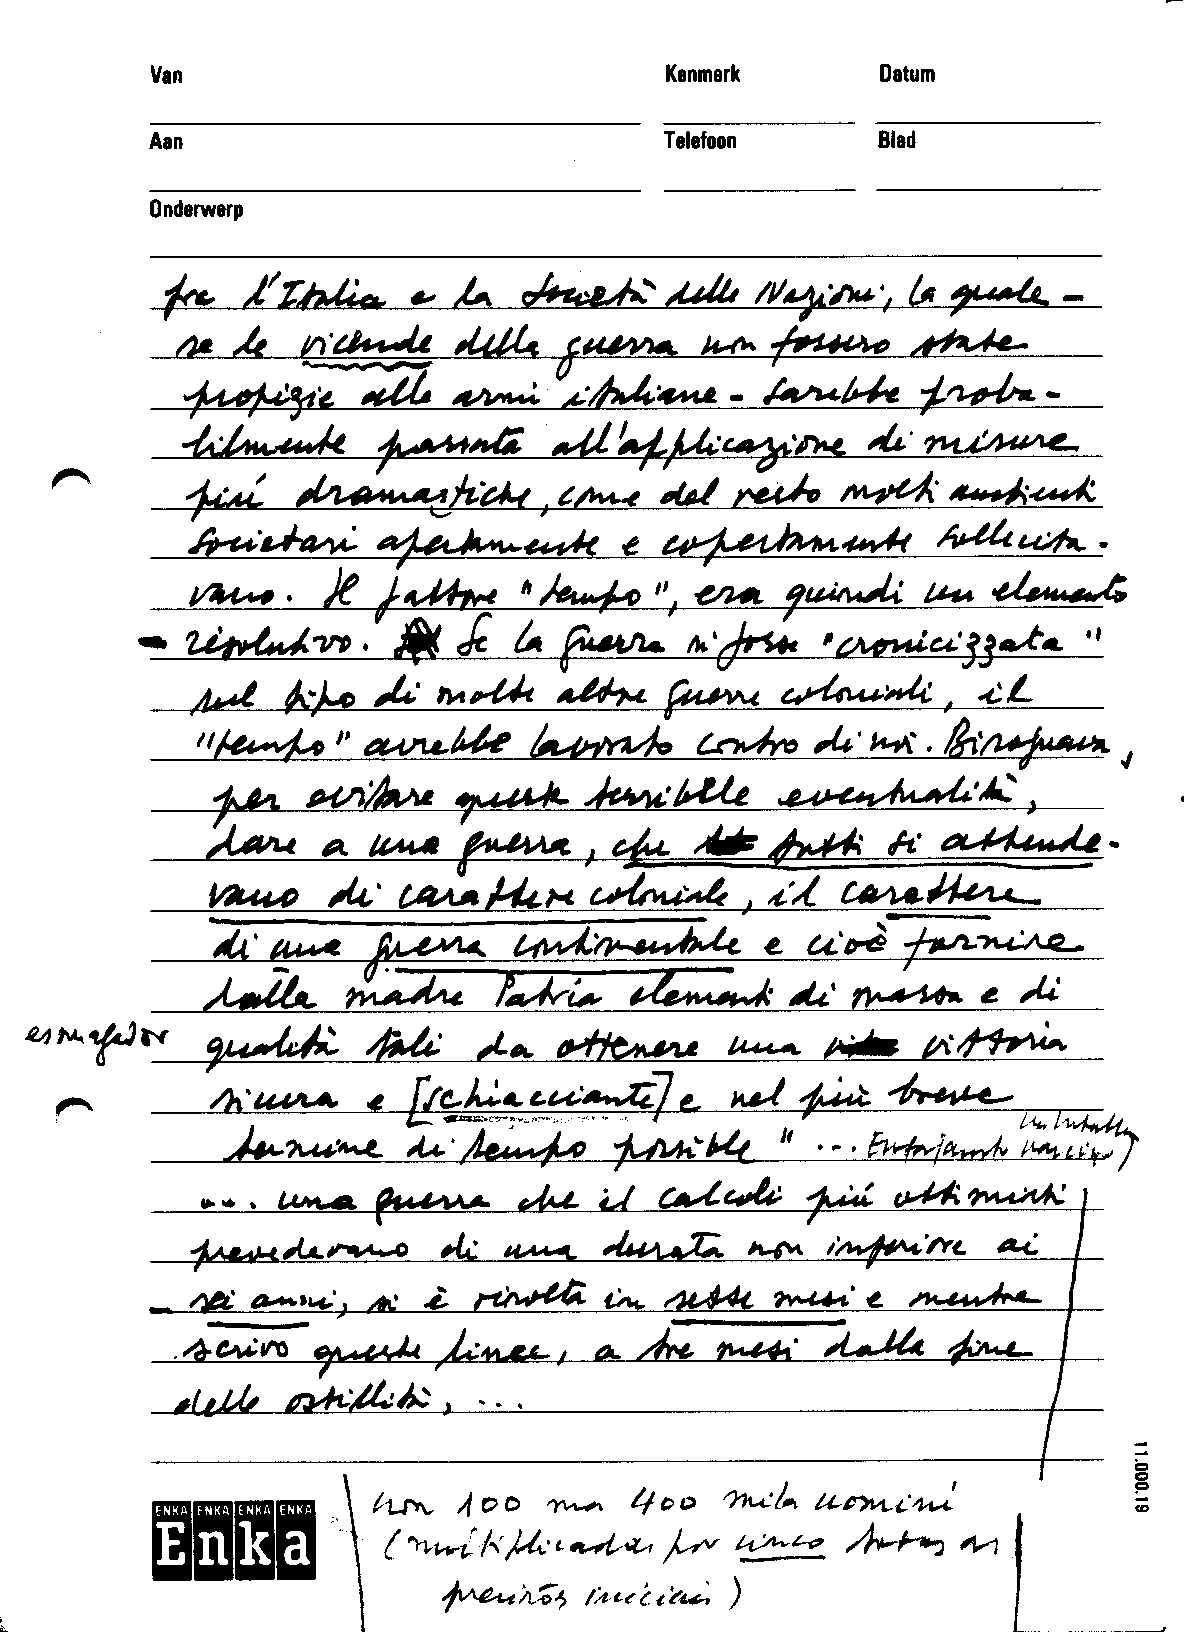 Van Kenmerk Datum
Aan Telefoon Blad
Onderwerp
fra l'Italia e la Società delle Nazioni, la quale -
se le vicende della guerra non fossero state
propizie alle armi italiane - sarebbe proba-
bilmente passata all'applicazione di misure
più dramastiche, come del resto molti ambienti
societari apertamente e copertamente sollecita-
vano. Il fattore "tempo", era quindi un elemento
- risolutivo. Se la guerra si fosse "cronicizzata"
sul tipo di molte altre guerre coloniali, il
"tempo" avrebbe lavorato contro di noi. Bisognava,
per evitare queste terribile eventualità,
dare a una guerra, che tutti si attende-
vano di carattere coloniale, il carattere
di una guerra continentale e cioè fornire
dalla madre Patria elementi di massa e di
esmagador qualità tali da ottenere una vittoria
sicura e [schiacciante] e nel più breve
termine di tempo possibile" ...
... una guerra che il calcoli più ottimisti
prevedevano di una durata non inferiore ai
- sei anni, si è risolta in sette mesi e mentre
scrivo queste linee, a tre mesi dalla fine
delle ostilità, ...
11.000.19
ENKA ENKA ENKA ENKA
Enka
non 100 ma 400 mila uomini
(multiplicadas por cinco todas as
previsões iniciais)